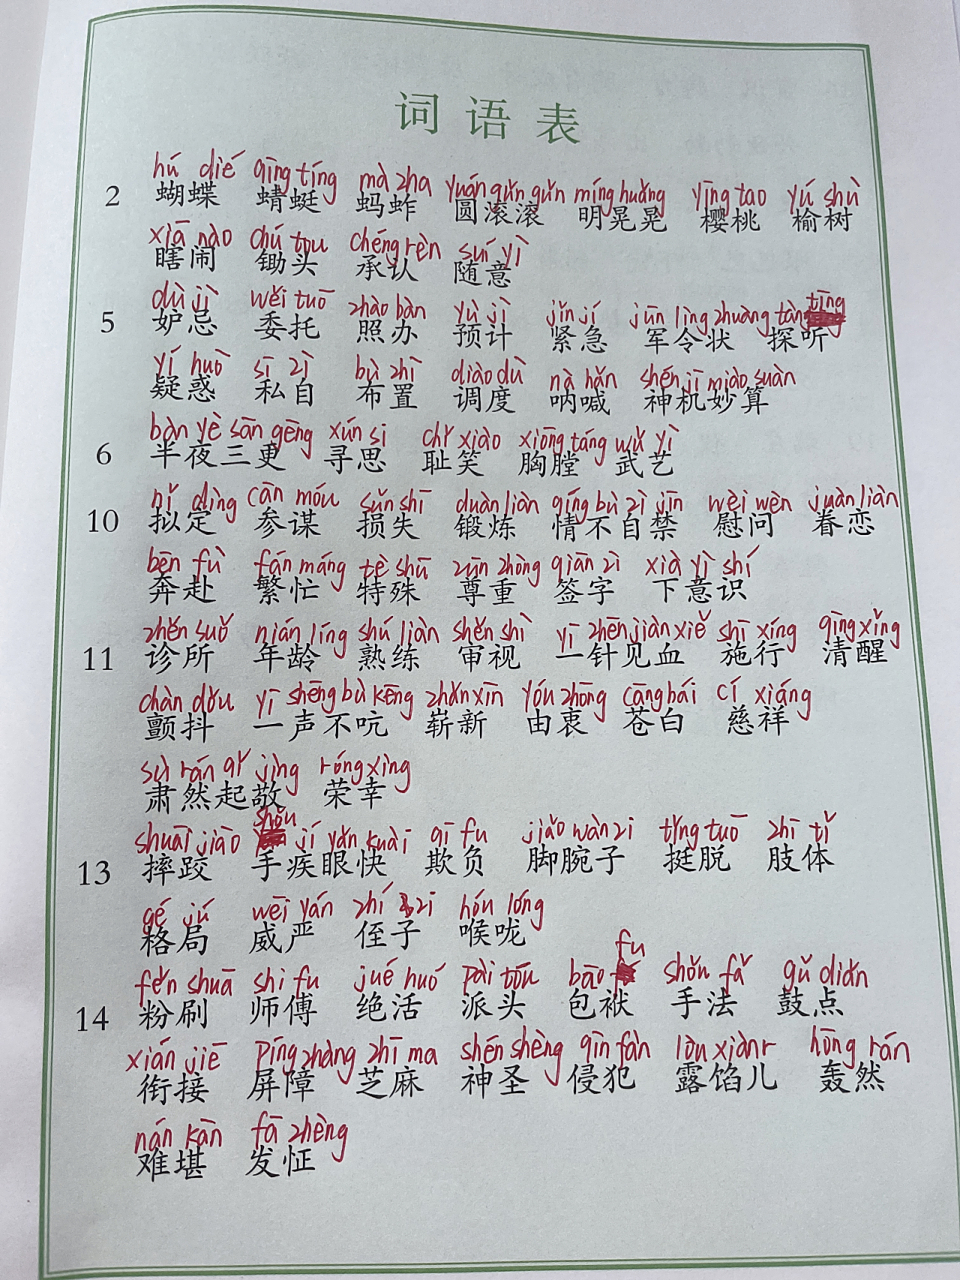 词语表
hú dié qīng tíng mà zha yuán gǔn gǔn míng huǎng yīng tao yú shù
2 蝴蝶 蜻蜓 蚂蚱 圆滚滚 明晃晃 樱桃 榆树
xiā nào chú tou chéng rèn suí yì
瞎闹 锄头 承认 随意
dù jì wěi tuō zhào bàn yù jì jǐn jí jūn lìng zhuàng tàn tīng
5 妒忌 委托 照办 预计 紧急 军令状 探听
yí huò sī zì bù zhì diào dù nà hǎn shén jī miào suàn
疑惑 私自 布置 调度 呐喊 神机妙算
bàn yè sān gēng xún si chǐ xiào xiōng táng wǔ yì
6 半夜三更 寻思 耻笑 胸膛 武艺
nǐ dìng cān móu sǔn shī duàn liàn qíng bù zì jīn wèi wèn juàn liàn
10 拟定 参谋 损失 锻炼 情不自禁 慰问 眷恋
bēn fù fán máng tè shū zūn zhòng qiān zì xià yì shí
奔赴 繁忙 特殊 尊重 签字 下意识
zhěn suǒ nián líng shú liàn shěn shì yī zhēn jiàn xiě shī xíng qīng xǐng
11 诊所 年龄 熟练 审视 一针见血 施行 清醒
chàn dǒu yī shēng bù kēng zhǎn xīn yóu zhōng cāng bái cí xiáng
颤抖 一声不吭 崭新 由衷 苍白 慈祥
sù rán qǐ jìng róng xìng
肃然起敬 荣幸
shuāi jiāo shǒu jí yǎn kuài qī fu jiǎo wàn zi tǐng tuō zhī tǐ
13 摔跤 手疾眼快 欺负 脚腕子 挺脱 肢体
gé jú wēi yán zhí zi hóu lóng
格局 威严 侄子 喉咙
fěn shuā shī fu jué huó pài tóu bāo fu shǒu fǎ gǔ diǎn
14 粉刷 师傅 绝活 派头 包袱 手法 鼓点
xián jiē píng zhàng zhī ma shén shèng qīn fàn lòu xiànr hōng rán
衔接 屏障 芝麻 神圣 侵犯 露馅儿 轰然
nán kān fā zhèng
难堪 发怔